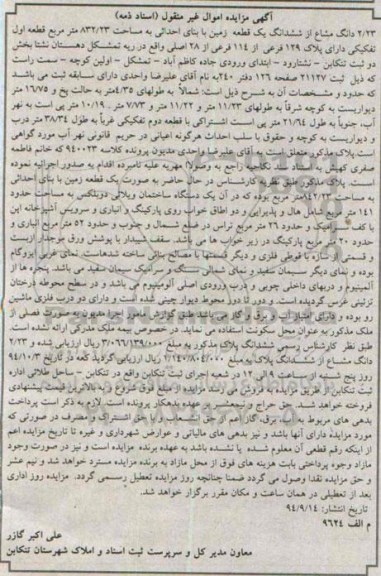 آگهی مزایده اموال غیر منقول (اسناد ذمه)
۲/۲۳ دانگ مشاع از ششدانگ یک قطعه زمین با بنای احداثی به مساحت ۸۳۲/۲۳ متر مربع قطعه اول
تفکیکی دارای پلاک ۱۲۹ فرعی از ۱۱۴ فرعی از ۲۸ اصلی واقع در قریه تمشکل دهستان نشتا بخش
دو ثبت تنکابن - نشتارود - ابتدای ورودی جاده کاظم آباد - تمشکل - اولین کوچه - سمت راست
که ذیل ثبت ۲۱۱۲۷ صفحه ۱۲۹ دفتر ۲۴۰ به نام آقای علیرضا واحدی دارای سابقه ثبت می باشد
که حدود و مشخصات آن به شرح ذیل است: شمالاً به طولهای ۶/۳۵ متر به حالت پخ و ۱۶/۷۵ متر
دیواریست به کوچه شرقاً به طولهای ۱۱/۲۳ متر و ۱۱/۲۲ متر و ۷/۷۳ متر و ۱۰/۱۹ متر پی است به نهر
آب، جنوباً به طول ۲۱/۶۴ متر پی است اشتراکی با قطعه دوم تفکیکی غرباً به طول ۳۸/۳۴ متر درب
و دیواریست به کوچه و حقوق با سلب احداث هرگونه اعیانی در حریم قانونی نهر آب مورد گواهی
است. پلاک مذکور متعلق است به آقای علیرضا واحدی مدیون پرونده کلاسه ۹۴۰۰۲۳ که خانم فاطمه
صفری کهیش به استناد سند نکاحیه (راجع به وصول) مهریه علیه نامبرده اقدام به صدور اجرائیه نموده
است. پلاک مذکور طبق نظریه کارشناس در حال حاضر به صورت یک قطعه زمین با بنای احداثی
به مساحت ۸۴۲/۲۳ متر مربع بوده که در آن یک دستگاه ساختمان ویلائی دوبلکس به مساحت حدود
۱۴۱ متر مربع شامل هال و پذیرایی و دو اطاق خواب روی پارکینگ و انباری و سرویس آشپزخانه اپن
با کف سرامیک و حدود ۲۶ متر مربع تراس در ضلع شمال و جنوب و حدود ۵۲ متر مربع انباری و
حدود ۲۰ متر مربع پارکینگ در زیر خواب ها می باشد. سقف شیبدار با پوشش ورق موجدار ایرانیت
و قسمتی از سازه با قوطی فلزی و دیگر قسمتها با مصالح بنائی ساخته شده است. نمای غربی ایزوگام
بوده و نمای دیگر سیمان سفید و نمای شمالی سنگ و سرامیک سیمان سفید می باشد. پنجره ها از
آلمینیوم و دربهای داخلی چوبی و درب ورودی اصلی آلومینیوم می باشد و در سطح محوطه درختان
تزئینی غرس گردیده است. و دور تا دور محوطه دیوار چینی شده است و دارای دو درب فلزی ماشین
رو بوده و دارای امتیاز آب و برق و گاز می باشد طبق گزارش مامور اجرا مدیون به صورت فصلی از
ملک مذکور به عنوان محل سکونت استفاده می نماید. در خصوص بیمه ملک مدرکی ارائه نشده است.
طبق نظر کارشناس رسمی ششدانگ پلاک مذکور به مبلغ ۳/۰۶۶/۱۳۹/۰۰۰ ریال ارزیابی شده و ۲/۲۳
دانگ مشاع از ششدانگ پلاک به مبلغ ۱/۲۴۰/۸۰۴/۰۰۰ ریال ارزیابی گردید که در تاریخ ۹۴/۱۰/۳
روز پنج شنبه از ساعت ۹ الی ۱۲ در شعبه اجرای ثبت تنکابن واقع در تنکابن - ساحل طلائی اداره
ثبت تنکابن از طریق مزایده به فروش می رسد مزایده از مبلغ فوق شروع و به بالاترین قیمت پیشنهادی
فروخته خواهد شد. حق حراج و نیم عشر به عهده بدهکار پرونده است. لازم به ذکر است پرداخت
بدهی های مربوط به آب، برق، گاز اعم از حق انشعاب و یا حق اشتراک و مصرف در صورتی که
مورد مزایده دارای آنها باشد و نیز بدهی های مالیاتی و عوارض شهرداری و غیره تا تاریخ مزایده اعم
از اینکه رقم قطعی آن معلوم شده یا نشده باشد به عهده برنده مزایده است و نیز در صورت وجود
مازاد وجوه پرداختی بابت هزینه های فوق از محل مازاد به برنده مزایده مسترد خواهد شد و نیم عشر
و حق مزایده نقدا وصول می گردد ضمنا چنانچه روز مزایده تعطیل رسمی گردد. مزایده روز اداری
بعد از تعطیلی در همان ساعت و مکان مقرر برگزار خواهد شد.
تاریخ انتشار: ۹۴/۹/۱۴
م الف ۹۶۲۴
علی اکبر گازر
معاون مدیر کل و سرپرست ثبت اسناد و املاک شهرستان تنکابن